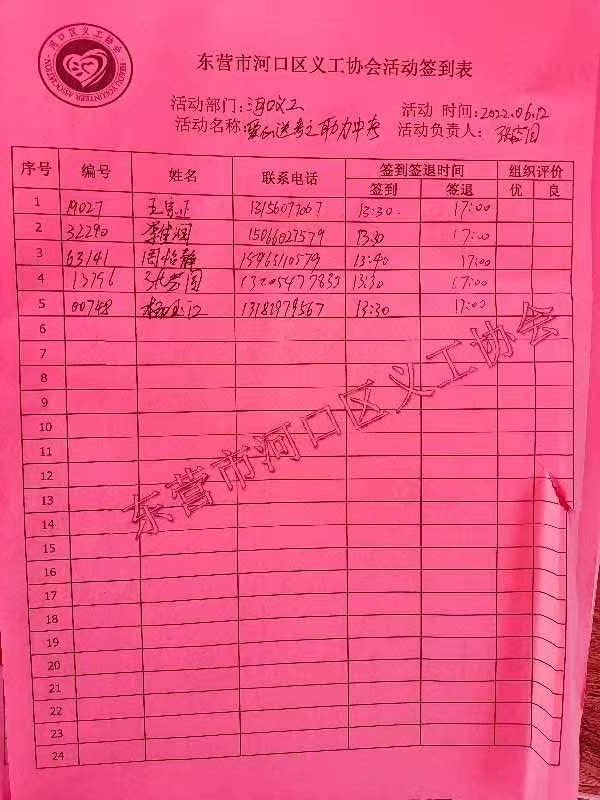 河口区义工协会
HEKOU VOLUNTEER ASSOCIATION
东营市河口区义工协会活动签到表
活动部门: 河口义工 活动 时间: 2022.06.12
活动名称: 爱心送考之助力中考 活动负责人: 张芳国
序号 编号 姓名 联系电话 签到签退时间 组织评价
签到 签退 优 良
1 19027 13156077067 13:30. 17:00
2 32290 李佳润 15066027579 13:30 17:00
3 63141 周怡静 15965110579 13:40 17:00
4 13796 张芳国 13205477833 13:30 17:00
5 00748 13181979567 13:30 17:00
6
7
8
9
10
11
12
13
14
15
16
17
18
19
20
21
22
23
24
东营市河口区义工协会